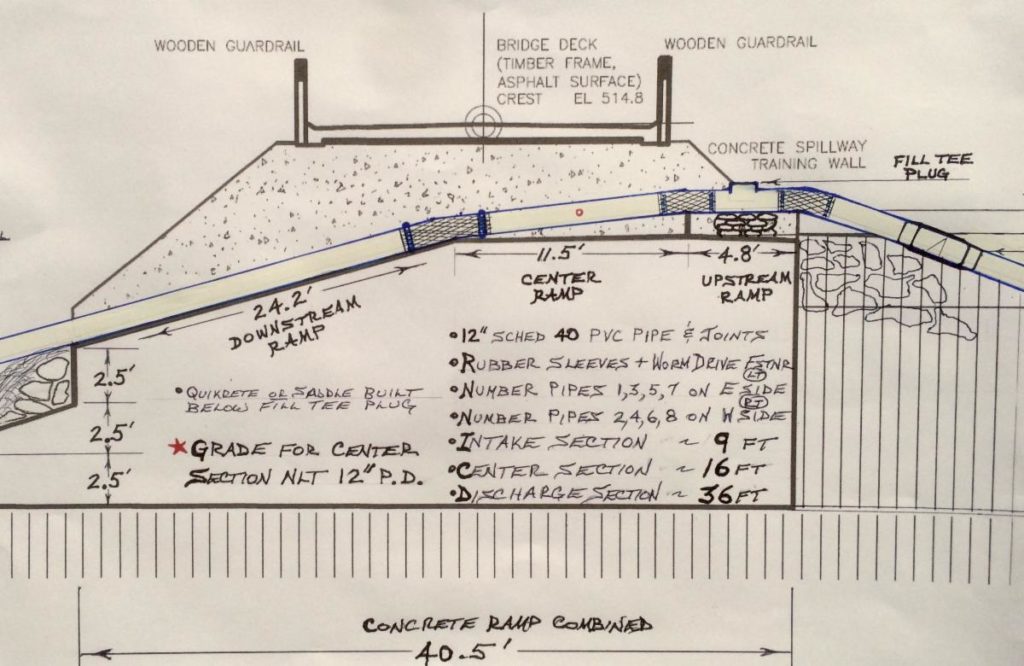 WOODEN GUARDRAIL
BRIDGE DECK
(TIMBER FRAME,
ASPHALT SURFACE)
CREST EL 514.8
WOODEN GUARDRAIL
CONCRETE SPILLWAY
TRAINING WALL
FILL TEE
PLUG
24.2'
DOWNSTREAM
RAMP
11.5'
CENTER
RAMP
4.8'
UPSTREAM
RAMP
2.5'
2.5'
2.5'
•QUIKRETE OR SADDLE BUILT
BELOW FILL TEE PLUG
★GRADE FOR CENTER
SECTION NLT 12" P.D.
•12" SCHED 40 PVC PIPE & JOINTS
•RUBBER SLEEVES + WORM DRIVE FSTNR
•NUMBER PIPES 1,3,5,7 ON E SIDE
LT
•NUMBER PIPES 2,4,6,8 ON W SIDE
RT
•INTAKE SECTION ~ 9 FT
•CENTER SECTION ~ 16 FT
•DISCHARGE SECTION ~ 36 FT
CONCRETE RAMP COMBINED
40.5'